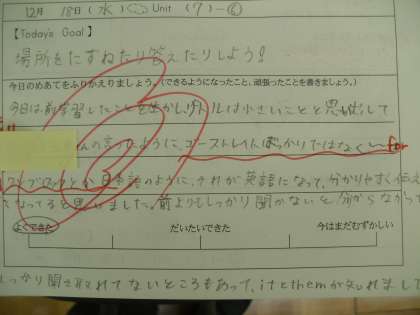 12月 18日(水) Unit (7)-⑥
【Today's Goal】
場所をたずねたり答えたりしよう!
今日のめあてをふりかえりましょう。(できるようになったこと、頑張ったことを書きましょう。)
今日は前学習したことを生かし、リトルは小さいことと思い出して
さんの言ったように、ゴーストレイトばっかりではなく for
ワンブロックとか日本語のように、それが英語になって、分かりやすく伝え
くなってると思いました。前よりもしっかり聞かないと分からなかっ
よくできた だいたいできた 今はまだむずかしい
しっかり聞き取れてないところもあって、itとthemが